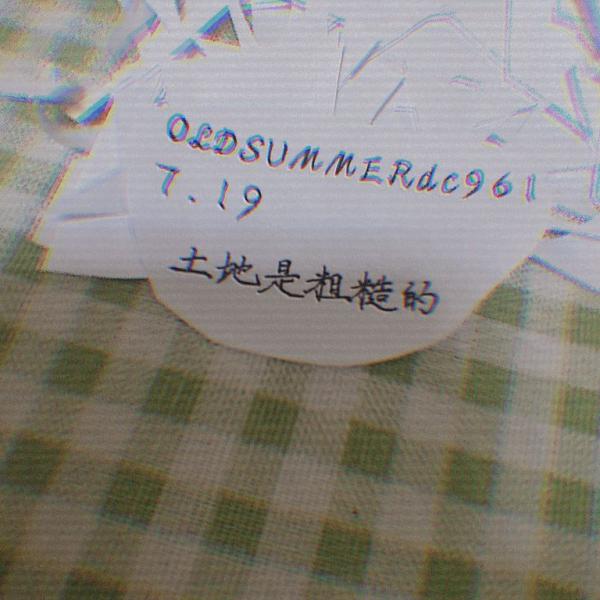 OLDSUMMERdc961
7.19
土地是粗糙的